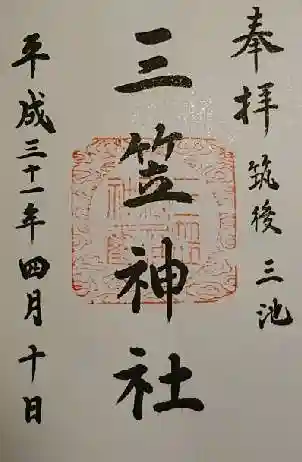 奉拝
筑後 三池
三笠神社
平成三十一年四月十日